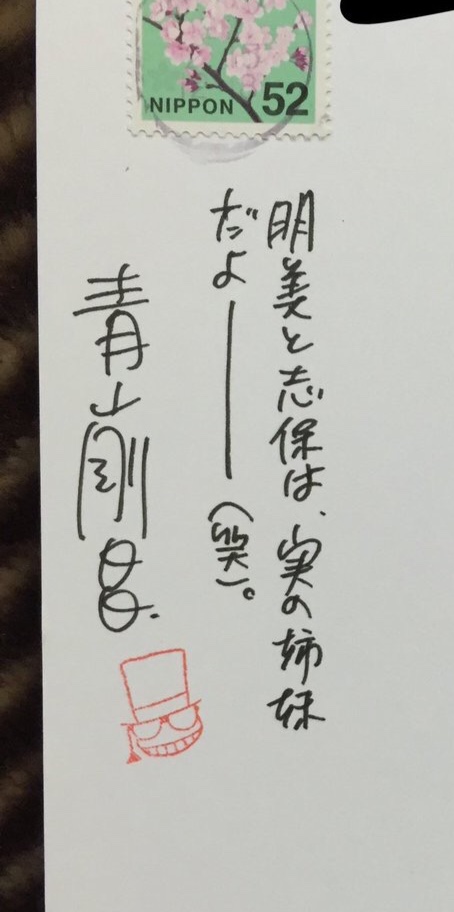 NIPPON 52
明美と志保は、実の姉妹
だよ――(笑)。
青山剛昌.